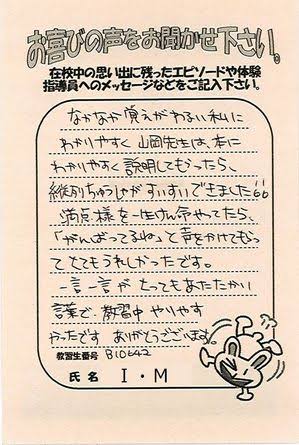 お喜びの声をお聞かせ下さい。
在校中の思い出に残ったエピソードや体験
指導員へのメッセージなどをご記入下さい。
なかなか覚えがわるい私に
わかりやすく 山岡先生は、本に
わかりやすく説明してもらったら、
縦列ちゅうしゃがすいすいできました!!
満点様を一生けん命やってたら、
「がんばってるね」と声をかけてもら
ってとてもうれしかったです。
一言一言が とってもあたたかい
言葉で、教習中 やりやす
かったです ありがとうございます。
教習生番号 B10642
氏名 I・M